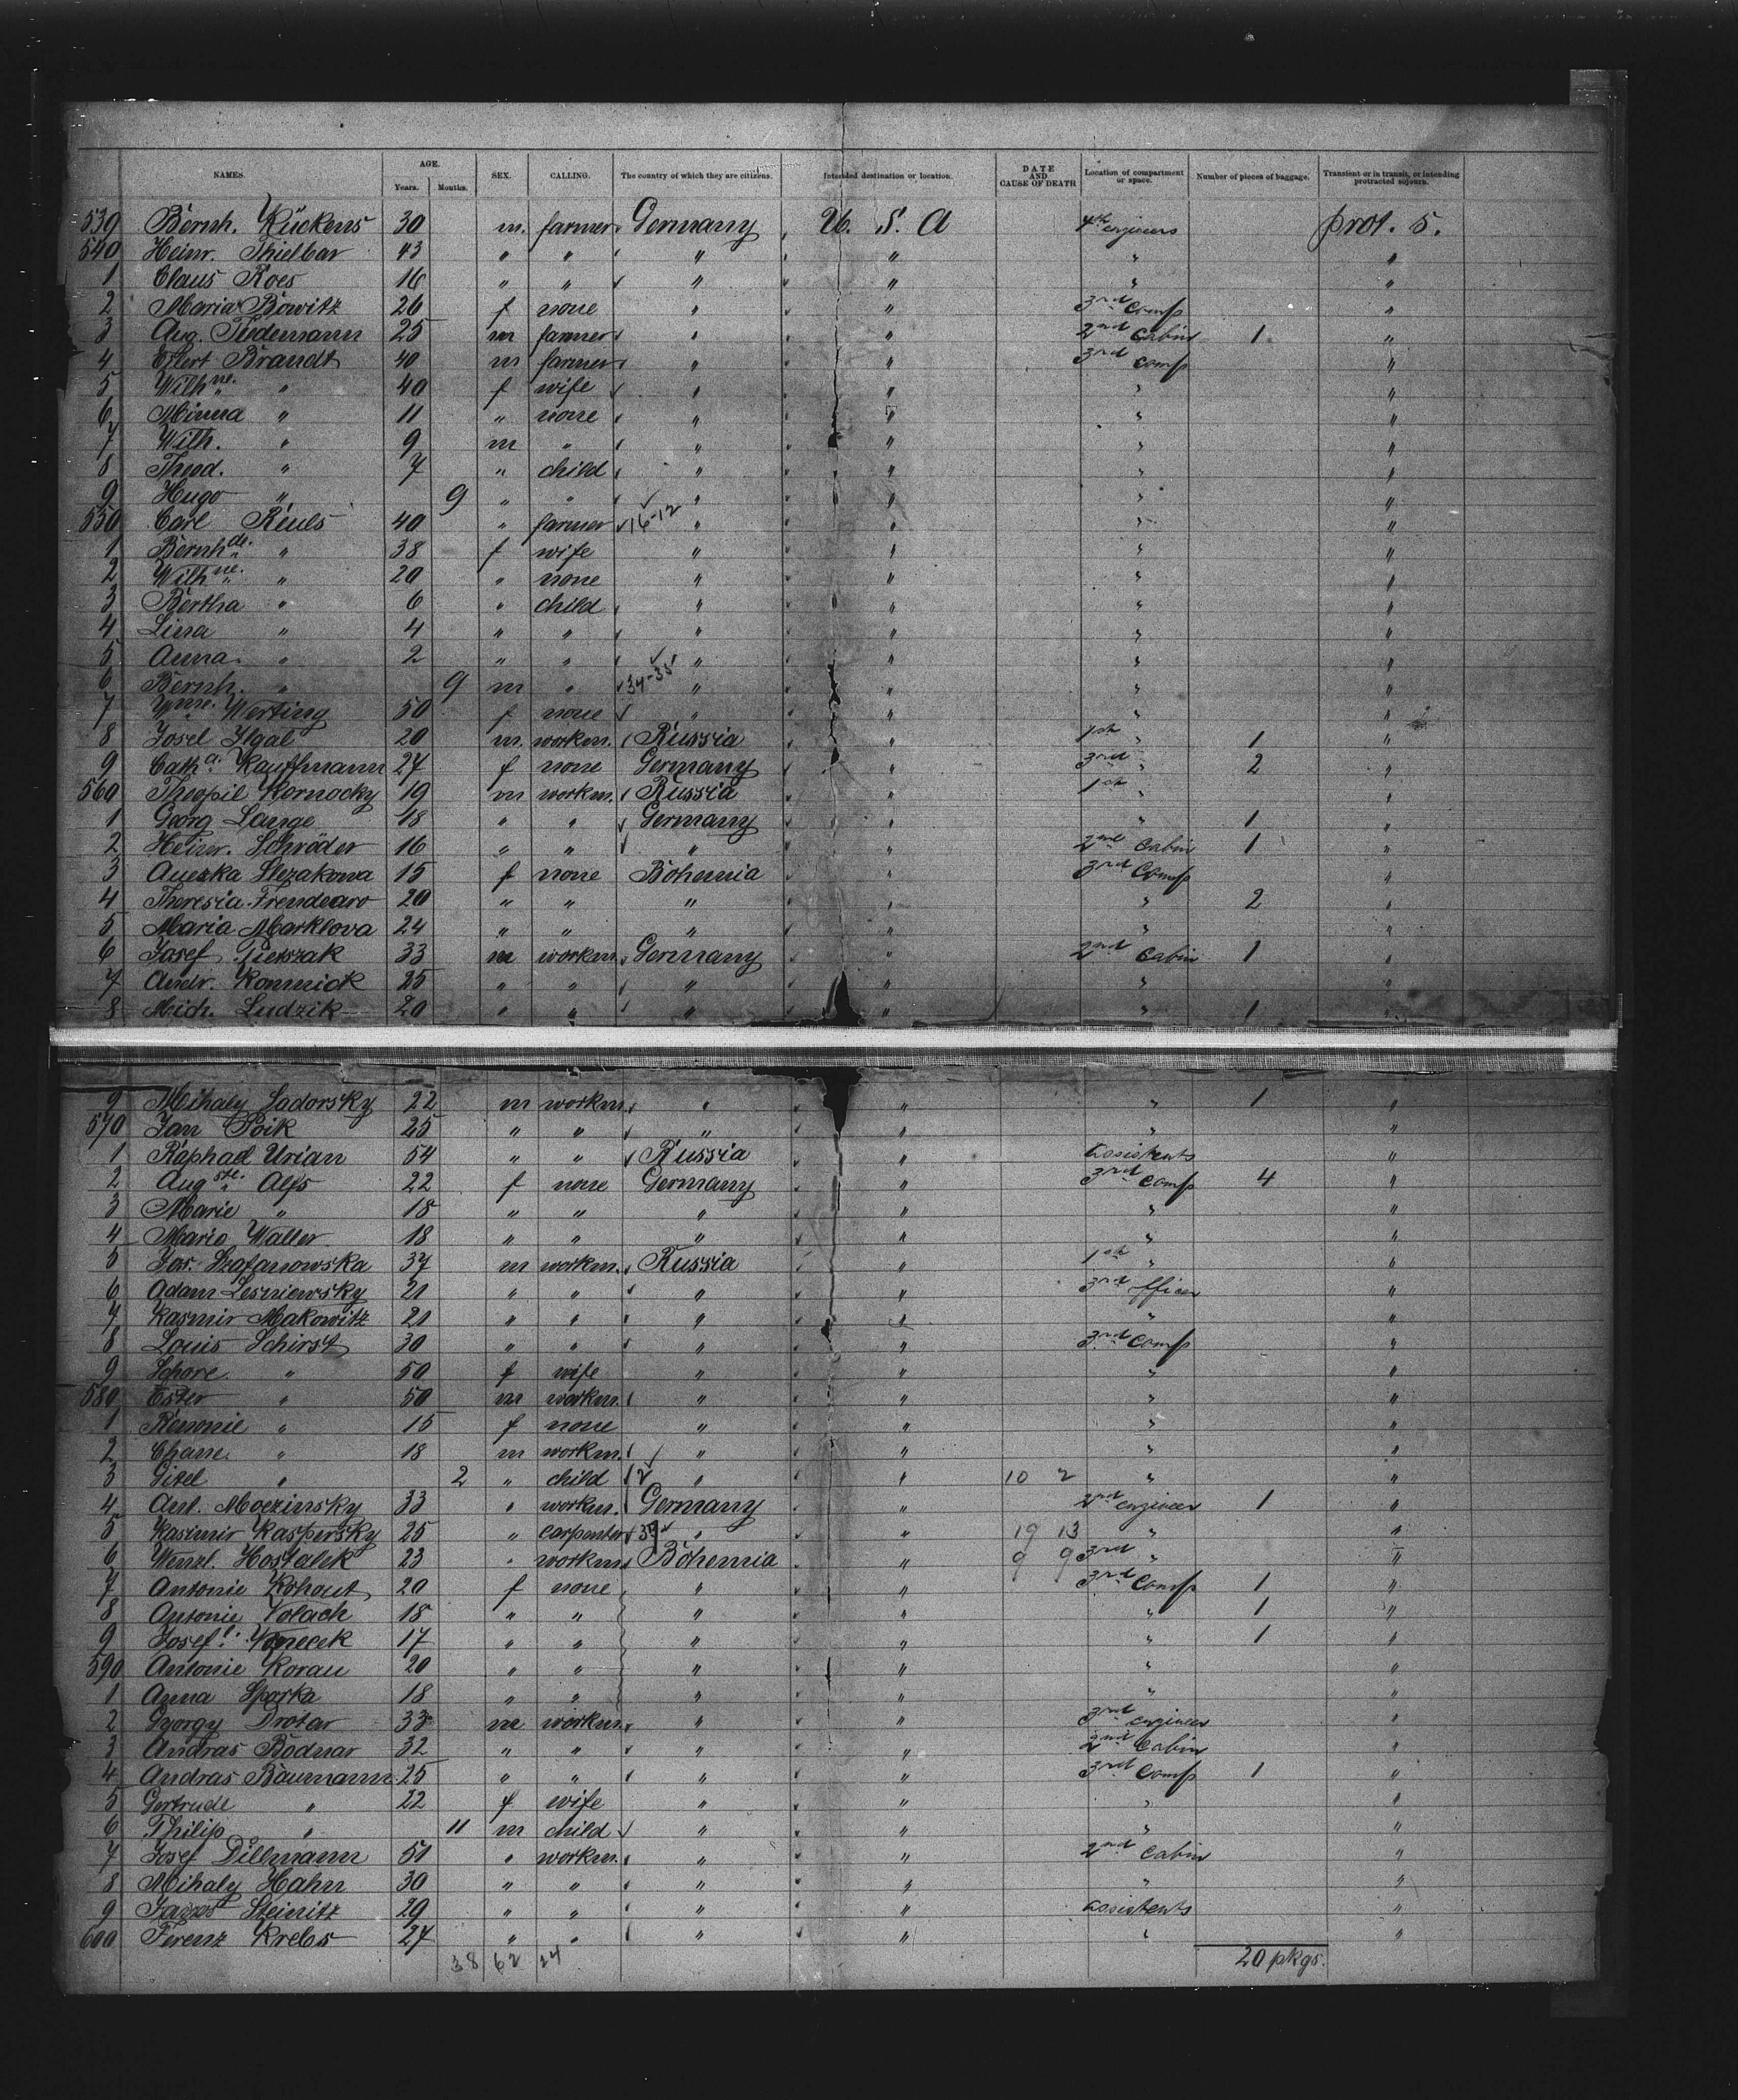 NAMES. AGE. Years. Months. SEX. CALLING. The country of which they are citizens. Intended destination or location. DATE AND CAUSE OF DEATH Location of compartment or space. Number of pieces of baggage. Transient or in transit, or intending protracted sojourn.
539 Bernh. Kückens 30 m. farmer Germany U. S. A 4th engineers prot. S.
540 Heinr. Thielbar 43 " " " " " "
1 Claus Roes 16 " " " " " "
2 Maria Bowitz 26 f none " " 3rd Comp "
3 Aug. Tiedemann 25 m farmer " " 2nd Cabin 1 "
4 Eilert Brandt 40 m farmer " " 3rd Comp "
5 Wilhne. " 40 f wife " " " "
6 Minna " 11 " none " " " "
7 Wilh. " 9 m " " " " "
8 Theod. " 7 " child " " " "
9 Hugo " 9 " " " " " "
550 Carl Reuls 40 " farmer 16-12 " " " "
1 Bernhde. " 38 f wife " " " "
2 Wilhne. " 20 " none " " " "
3 Bertha " 6 " child " " " "
4 Lina " 4 " " " " " "
5 Anna " 2 " " " " " "
6 Bernh. " 9 m " 34-35 " " " "
7 Werting 50 f none " " " "
8 Josel 20 m. workm. Russia " 1st " 1 "
9 Catha. Kauffmann 27 f none Germany " 3rd " 2 "
560 Theopil Kornacky 19 m workm. Russia " 1st " "
1 Georg Lange 18 " " Germany " " 1 "
2 Heinr. Schröder 16 " " " " 2nd Cabin 1 "
3 Aneska Slezakowa 15 f none Bohemia " 3rd Comp "
4 Theresia 20 " " " " " 2 "
5 Maria Marklova 24 " " " " " "
6 Josef Pietszak 33 m workm. Germany " 2nd Cabin 1 "
7 Andr. Konnick 25 " " " " " "
8 Mich. Ludzik 20 " " " " " 1 "
9 Mihaly Sadorsky 22 m workm. " " " 1 "
570 Jan Poik 25 " " " " " "
1 Raphael Urian 54 " " Russia " assistents "
2 Augste. Alfs 22 f none Germany " 3rd Comp 4 "
3 Marie " 18 " " " " " "
4 Marie Waller 18 " " " " " "
5 Jos. Szafanowska 37 m workm. Russia " 1st " "
6 Adam Lesniewsky 21 " " " " 3rd officer "
7 Kasmir Makowitz 21 " " " " " "
8 Louis Schirst 30 " " " " 3rd Comp "
9 Schore " 50 f wife " " " "
580 Ester " 50 m workm. " " " "
1 " 15 f none " " " "
2 Chane " 18 m workm. " " " "
3 Gitel " 2 " child 2 " " 10 2 " "
4 Ant. Moczinsky 33 " workm. Germany " 2nd engineer 1 "
5 Kasimir Kaspersky 25 " carpenter " " 19 13 " "
6 Wenzl. Hostalek 23 " workm. Bohemia " 9 9 3rd " "
7 Antonie Kohout 20 f none " " 3rd Comp 1 "
8 Antonie Volach 18 " " " " " 1 "
9 17 " " " " " 1 "
590 Antonie Korau 20 " " " " " "
1 Anna Sporka 18 " " " " " "
2 Gyorgy Drotar 33 m workm. " " 3rd engineer "
3 Andras Bodnar 32 " " " " 2nd Cabin "
4 Andras Baumann 25 " " " " 3rd Comp 1 "
5 Gertrude " 22 f wife " " " "
6 Philip " 11 m child " " " "
7 Josef Dillmann 51 " workm. " " 2nd Cabin "
8 Mihaly Hahn 30 " " " " " "
9 Steinitz 29 " " " " assistents "
600 Ferenz Krebs 27 " " " " " "
38 62 24 20 pkgs.